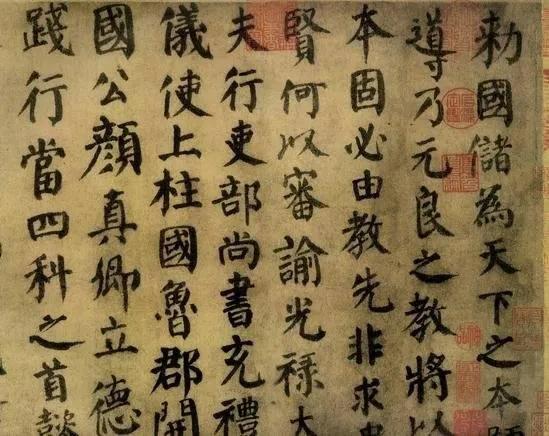 勑國儲為天下之本師
導乃元良之教將以
本固必由教先非求忠
賢何以審諭光祿大
夫行吏部尚書充禮
儀使上柱國魯郡開
國公顏真卿立德
踐行當四科之首懿